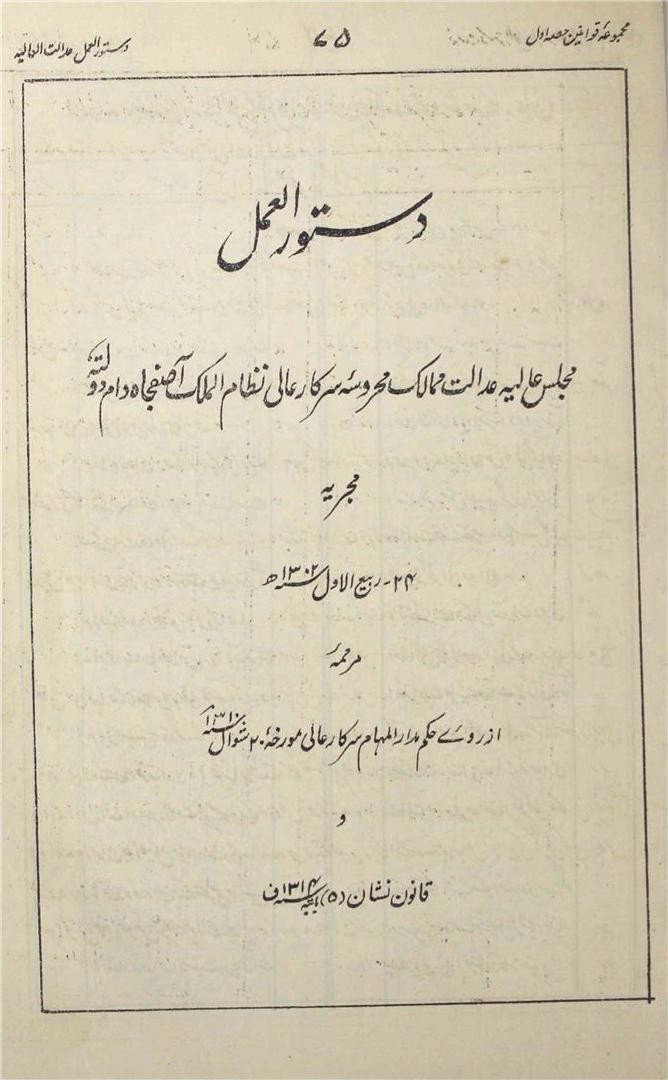 مجموعۂ قوانین حصہ اول
۷۵
دستور العمل عدالت العالیہ
دستور العمل
مجلس عالیہ عدالت ممالک محروسہ سرکار عالی نظام الملک آصفجاہ دام دولتہ
مجریہ
۲۴- ربیع الاول سنہ ۱۳۰۲ ھ
مرممہ
از روے حکم مدار المہام سرکار عالی مورخہ ۲۰ شوال
و
قانون نشان (۵) بابتہ سنہ ۱۳۱۴ ف